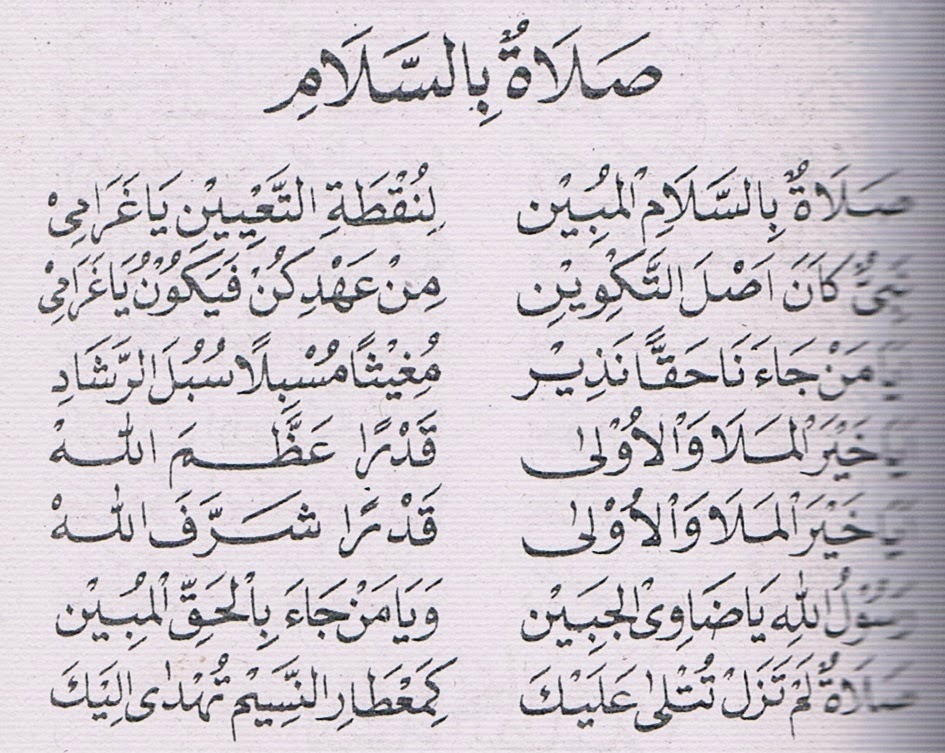 صَلَاةٌ بِالسَّلَامِ
صَلَاةٌ بِالسَّلَامِ الْمُبِيْنِ لِنُقْطَةِ التَّعْيِيْنِ يَا غَرَامِيْ
نَبِيٌّ كَانَ اَصْلَ التَّكْوِيْنِ مِنْ عَهْدِ كُنْ فَيَكُوْنُ يَا غَرَامِيْ
يَا مَنْ جَاءَنَا حَقًّا نَذِيْر مُغِيْثًا مُسْبِلًا سُبُلَ الرَّشَادِ
يَا خَيْرَ الْمَلَا وَالْاُوْلٰى قَدْرًا عَظَّمَ اللّٰهْ
يَا خَيْرَ الْمَلَا وَالْاُوْلٰى قَدْرًا شَرَّفَ اللّٰهْ
رَسُوْلُ اللّٰهِ يَا ضَاوِى الْجَبِيْن وَيَا مَنْ جَاءَ بِالْحَقِّ الْمُبِيْن
صَلَاةٌ لَمْ تَزَلْ تُتْلٰى عَلَيْكَ كَمِعْطَارِ النَّسِيْمِ تُهْدٰى اِلَيْكَ